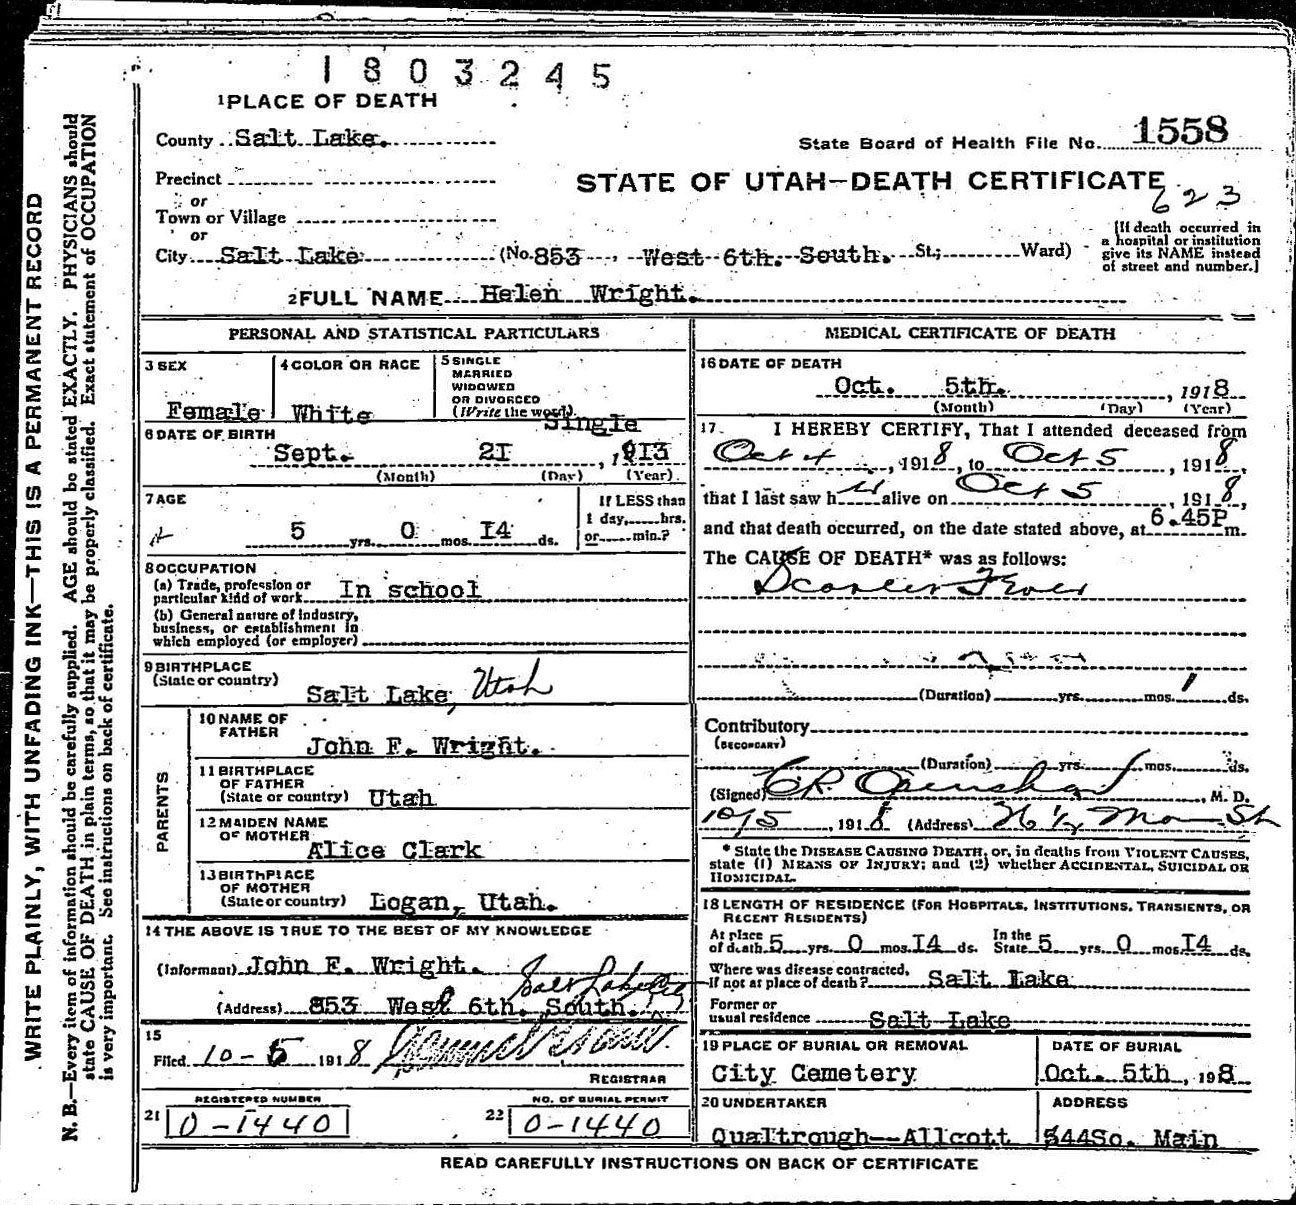 1803245
1 PLACE OF DEATH
County Salt Lake.
State Board of Health File No. 1558
Precinct
or
STATE OF UTAH—DEATH CERTIFICATE
623
Town or Village
or
City Salt Lake (No. 853 West 6th. South. St; Ward)
[If death occurred in
a hospital or institution
give its NAME instead
of street and number.]
2 FULL NAME Helen Wright.
PERSONAL AND STATISTICAL PARTICULARS
3 SEX
Female
4 COLOR OR RACE
White
5 SINGLE
MARRIED
WIDOWED
OR DIVORCED
(Write the word)
Single
6 DATE OF BIRTH
Sept. 21, 1913
(Month) (Day) (Year)
7 AGE
5 yrs. 0 mos. I4 ds.
If LESS than
1 day, hrs.
or min.?
8 OCCUPATION
(a) Trade, profession or
particular kind of work In school
(b) General nature of industry,
business, or establishment in
which employed (or employer)
9 BIRTHPLACE
(State or country)
Salt Lake, Utah
PARENTS
10 NAME OF
FATHER
John F. Wright.
11 BIRTHPLACE
OF FATHER
(State or country) Utah
12 MAIDEN NAME
OF MOTHER
Alice Clark
13 BIRTHPLACE
OF MOTHER
(State or country) Logan, Utah.
14 THE ABOVE IS TRUE TO THE BEST OF MY KNOWLEDGE
(Informant) John F. Wright.
(Address) 853 West 6th. South. Salt Lake City
15
Filed 10-5 1918
REGISTRAR
REGISTERED NUMBER
21 0-1440
NO. OF BURIAL PERMIT
22 0-1440
MEDICAL CERTIFICATE OF DEATH
16 DATE OF DEATH
Oct. 5th. , 1918
(Month) (Day) (Year)
17. I HEREBY CERTIFY, That I attended deceased from
Oct 4, 1918, to Oct 5, 1918,
that I last saw h alive on Oct 5, 1918,
and that death occurred, on the date stated above, at 6.45P m.
The CAUSE OF DEATH* was as follows:
Scarlet Fever
(Duration) yrs. mos. 1 ds.
Contributory
(SECONDARY)
(Duration) yrs. mos. ds.
(Signed) C.R. Openshaw, M. D.
10/5, 1918 (Address) Main St
* State the DISEASE CAUSING DEATH, or, in deaths from VIOLENT CAUSES,
state (1) MEANS OF INJURY; and (2) whether ACCIDENTAL, SUICIDAL OR
HOMICIDAL.
18 LENGTH OF RESIDENCE (FOR HOSPITALS, INSTITUTIONS, TRANSIENTS, OR
RECENT RESIDENTS)
At place
of death 5 yrs. 0 mos. I4 ds. In the
State 5 yrs. 0 mos. I4 ds.
Where was disease contracted,
if not at place of death? Salt Lake
Former or
usual residence Salt Lake
19 PLACE OF BURIAL OR REMOVAL
City Cemetery
DATE OF BURIAL
Oct. 5th, 198
20 UNDERTAKER
Qualtrough--Allcott
ADDRESS
544 So. Main
READ CAREFULLY INSTRUCTIONS ON BACK OF CERTIFICATE
WRITE PLAINLY, WITH UNFADING INK—THIS IS A PERMANENT RECORD
N. B.—Every item of information should be carefully supplied. AGE should be stated EXACTLY. PHYSICIANS should
state CAUSE OF DEATH in plain terms, so that it may be properly classified. Exact statement of OCCUPATION
is very important. See instructions on back of certificate.